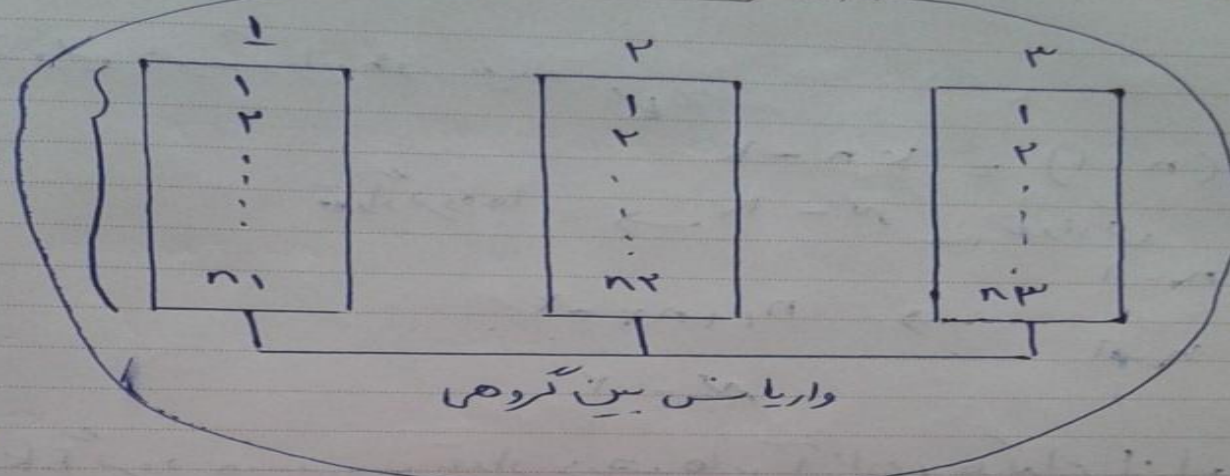 ۱ ۲ ۳
۱ ۱ ۱
۲ ۲ ۲
n۱ n۲ n۳
واریانس بین گروهی